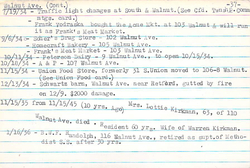 Walnut Ave. (Cont.) -37-
7/19/34 - Traffic light changes at South & Walnut. (See Cfd.
ntgs. card.)
Frank bought the Mkt. at 103 Walnut & will run it as
Frank's Meat Market.
9/6/34 - Baker's Drug Store - 102 Walnut Ave.
- Bakery - 105 Walnut Ave.
- Frank's Meat Market - 103 Walnut Ave.
10/11/34 - Peterson Dairy - 9 Walnut Ave., to open 10/15/34.
10/18/34 - A & P - 107 Walnut Ave.
10/25/34 - Union Food Store, formerly 31 N.Union moved to 206-8 Walnut.
(See Union Food card.)
12/12/34 - Schwartz barn, Walnut Ave. near Retford, gutted by fire
on 12/9. $2000 damages.
11/15/35 for 11/15/45 (10 yrs. Ago) Mrs. Lottie Kirkman, 63, of 110
Walnut Ave. died - Resident 60 yrs. Wife of Warren Kirkman.
1/16/36 - N.V. Randolph, 116 Walnut Ave., retired as supt. of Metho-
dist S.S. after 30 yrs.